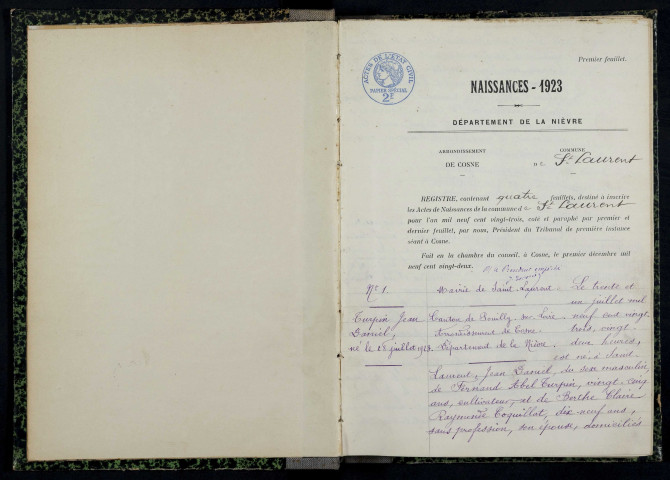 Premier feuillet.
ACTES DE L'ÉTAT CIVIL
PAPIER SPÉCIAL
2F
NAISSANCES - 1923
DÉPARTEMENT DE LA NIÈVRE
ARRONDISSEMENT
DE COSNE
COMMUNE
DE St Laurent
REGISTRE, contenant quatre feuillets, destiné à inscrire
les Actes de Naissances de la commune de St Laurent
pour l'an mil neuf cent vingt-trois, coté et paraphé par premier et
dernier feuillet, par nous, Président du Tribunal de première instance
séant à Cosne.
Fait en la chambre du conseil, à Cosne, le premier décembre mil
neuf cent vingt-deux.
No 1.
Turpin Jean
Daniel,
né le 28 juillet 1923
Mairie de Saint Laurent.
Canton de Pouilly-sur-Loire
Arrondissement de Cosne.
Département de la Nièvre.
Le trente et
un juillet mil
neuf cent vingt
trois, vingt-
deux heures,
est né à Saint
Laurent, Jean Daniel, du sexe masculin,
de Fernand Abel Turpin, vingt-cinq
ans, cultivateur, et de Berthe Claire
Raymonde Coquillat, dix-neuf ans,
sans profession, son épouse, domiciliés